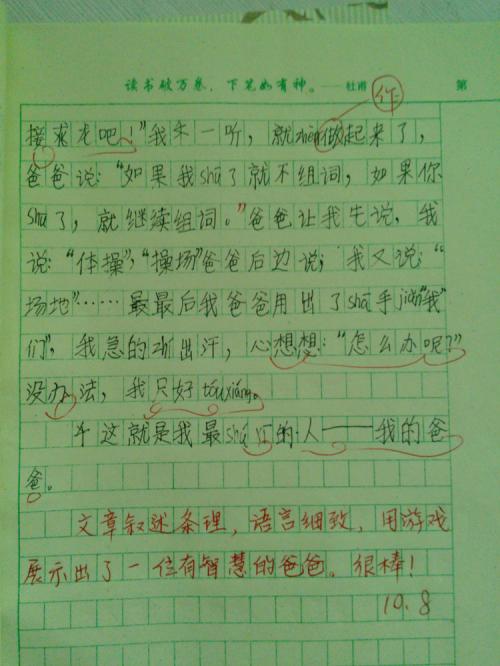 读书破万卷，下笔如有神。——杜甫
第
作
接求龙吧！"我末一听，就zhèn做起来了，
爸爸说："如果我shū了就不组词，如果你
shū了，就继续组词。"爸爸让我先说，我
说："体操"，"操场"爸爸后边说；我又说："
场地"……最最后我爸爸用出了shā手jiǎn"我
们"，我急的出汗，心想想："怎么办呢？"
没办法，我只好tóuxiáng。
这就是我最shú的人——我的爸
爸。
文章叙述条理，语言细致，用游戏
展示出了一位有智慧的爸爸。很棒！
10.8